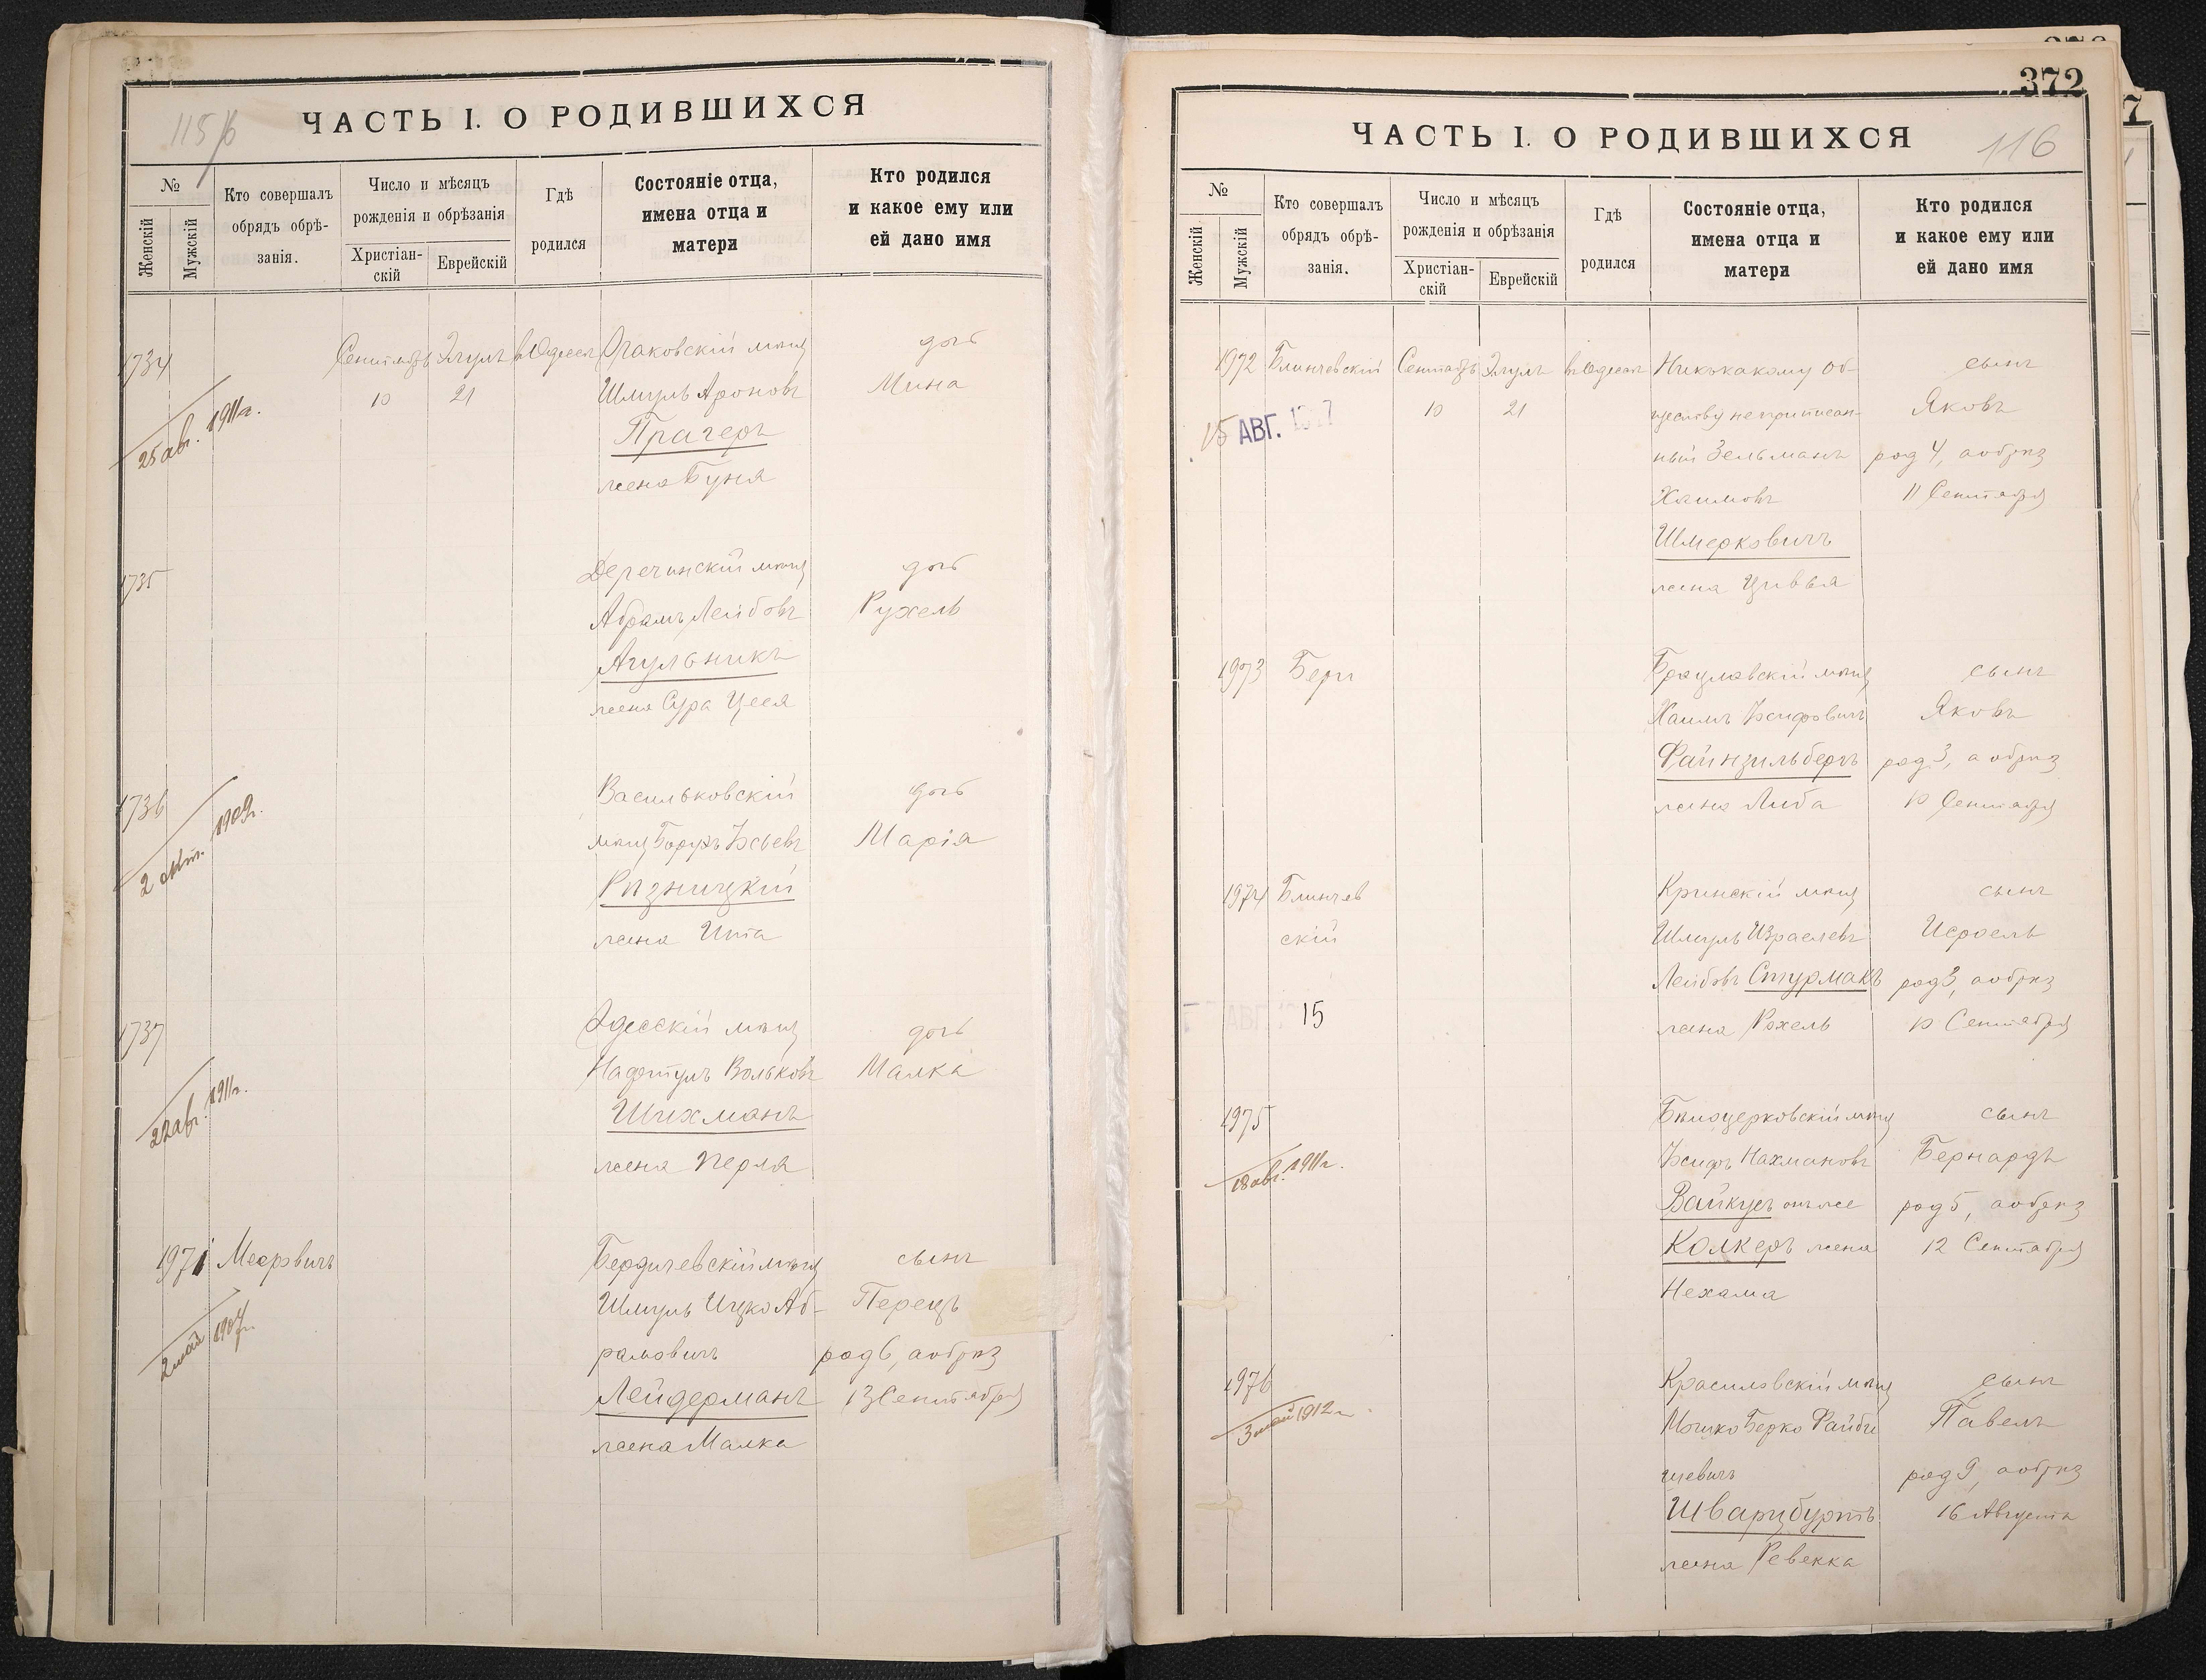 115/б
ЧАСТЬ I. О РОДИВШИХСЯ
№
Женскій
Мужскій
Кто совершалъ
обрядъ обрѣ-
занія.
Число и мѣсяцъ
рожденія и обрѣзанія
Христіан-
скій
Еврейскій
Гдѣ
родился
Состояніе отца,
имена отца и
матери
Кто родился
и какое ему или
ей дано имя
1734 Сентябрь Элулъ въ Одессѣ Очаковскій мѣщ дочь
10 21 Шмуль Ароновъ Мина
25 авг. 1911г.
Прагеръ
жена Буня
1735 Деречинскій мѣщ дочь
Абрамъ Лейбовъ Рухель
Агульникъ
жена Сура Цееля
1736 Васильковскій дочь
2 окт. 1909г.
мѣщ Борухъ Іосьевъ Марія
Рѣзницкій
жена Ита
1737 Одесскій мѣщ дочь
Нафтулъ Вольковъ Малка
22 авг. 1911г.
Шихманъ
жена Перля
1971 Мееровичъ Бердичевскій мѣщ сынъ
Шмуль Ицко Аб- Перецъ
2 май 1907г.
рамовичъ род 6, а обрѣз
Лейдерманъ 13 Сентября
жена Малка
372
ЧАСТЬ I. О РОДИВШИХСЯ
116
№
Женскій
Мужскій
Кто совершалъ
обрядъ обрѣ-
занія.
Число и мѣсяцъ
рожденія и обрѣзанія
Христіан-
скій
Еврейскій
Гдѣ
родился
Состояніе отца,
имена отца и
матери
Кто родился
и какое ему или
ей дано имя
1972 Блинчевскій Сентябрь Элулъ въ Одессѣ Никъкакому об- сынъ
15 АВГ.
10 21 ществу неприписан- Яковъ
ный Зельманъ род 4, а обрѣз
Хаимовъ 11 Сентября
Шмерковичъ
жена Цивья
1973 Бергъ Брацлавскій мѣщ сынъ
Хаимъ Іосифовичъ Яковъ
Файнзильбергъ род 3, а обрѣз
жена Либа 10 Сентября
1974 Блинчев Кринскій мѣщ сынъ
скій Шмуль Израелевъ Исроель
Лейбовъ Стурмакъ род 3, а обрѣз
15 жена Рохель 10 Сентября
1975 Бѣлоцерковскій мѣщ сынъ
18 авг. 1911г.
Іосифъ Нахмановъ Бернардъ
Вайкусъ онъже род 5, а обрѣз
Колкеръ жена 12 Сентября
Нехама
1976 Красиловскій мѣщ сынъ
3 май 1912г.
Мошко Берко Файби Павелъ
шевичъ род 9, а обрѣз
Шварцбуртъ 16 Августа
жена Ревекка